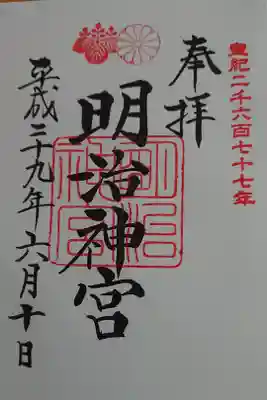 皇紀二千六百七十七年
奉拝
明治神宮
明治神宮
平成二十九年六月十日